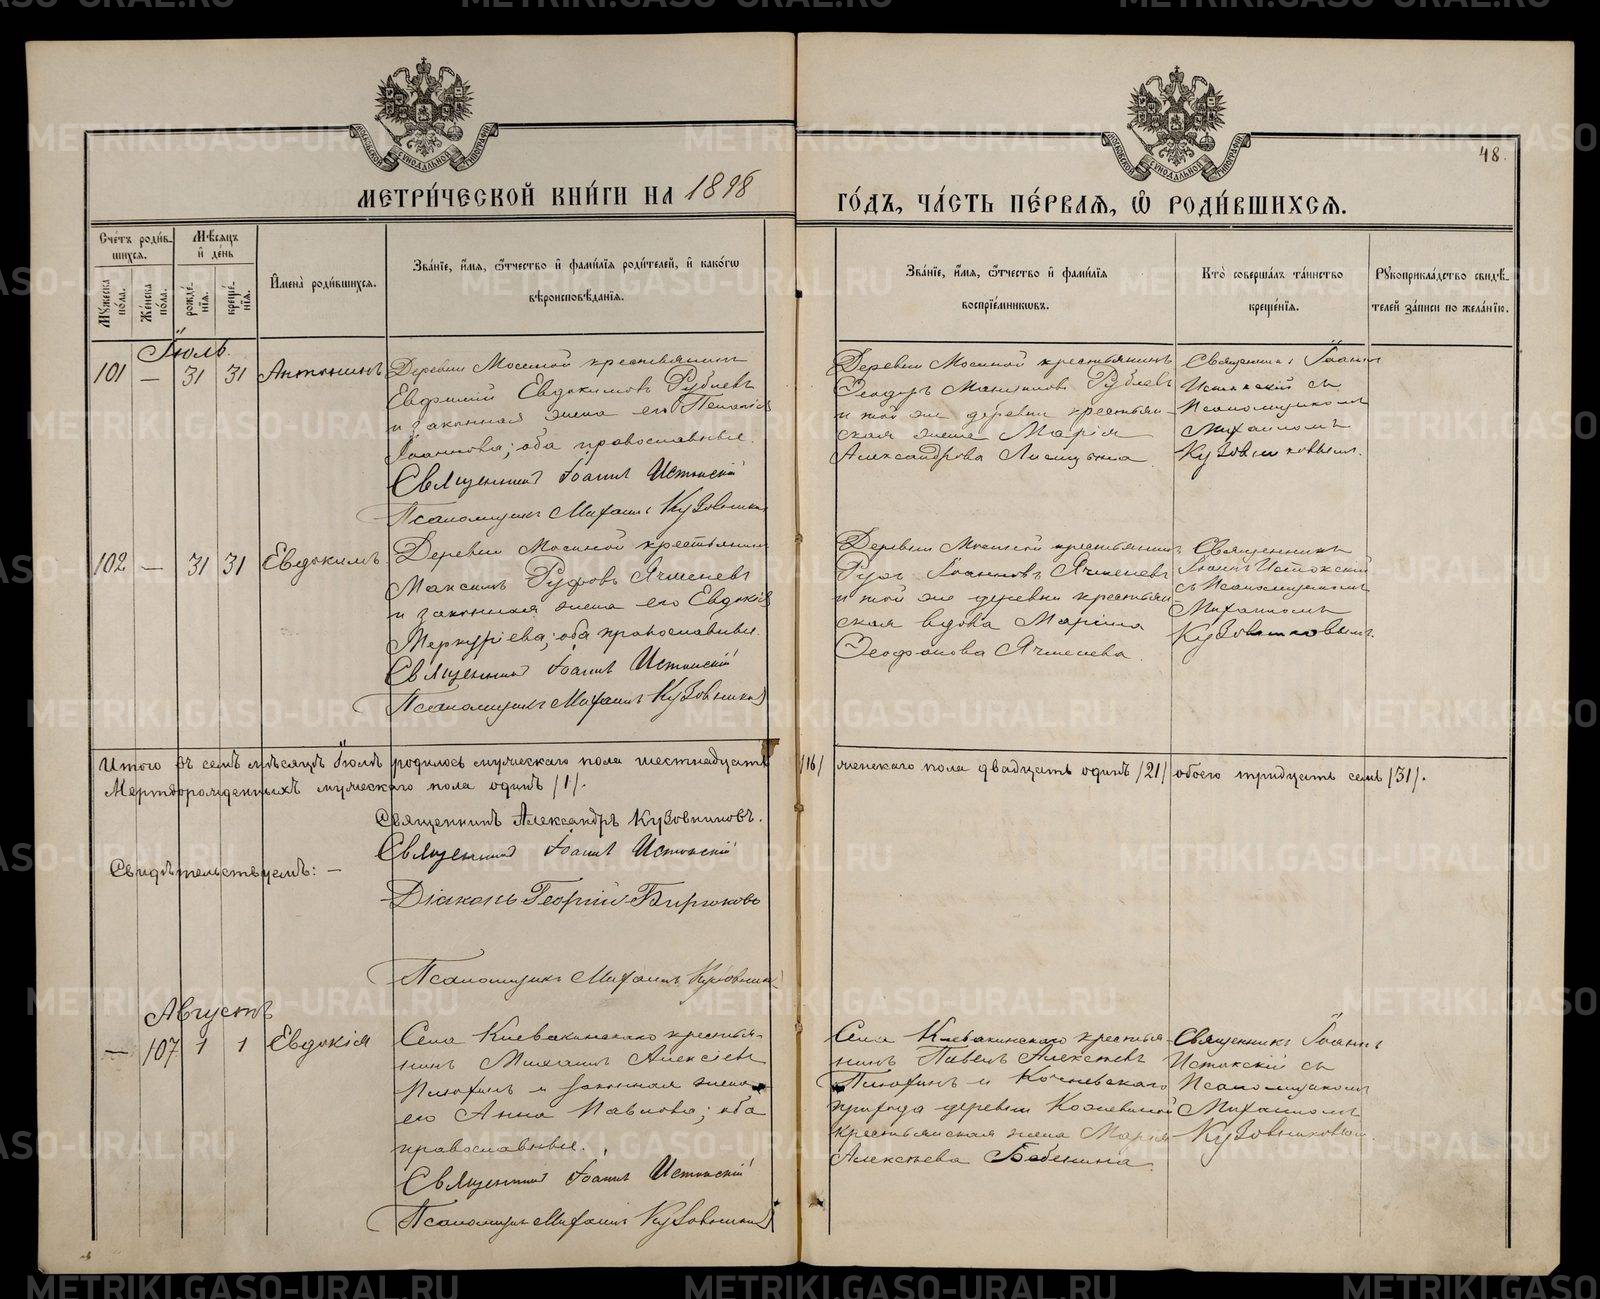 МЕТРИ́ЧЕСКОЙ КНИ́ГИ НА 1898
ГО́ДЪ, ЧА́СТЬ ПЕ́РВАЯ, Ѡ РОДИ́ВШИХСЯ.
48.
Сче́тъ роди́в-
шихся.
Мѣсяцъ
и де́нь
Му́жеска по́ла.
Же́нска по́ла.
рожде́нїя.
креще́нїя.
Имена̀ роди́вшихся.
Зва́нїе, и́мя, о́тчество и фами́лїя роди́телей, и како́гѡ
вѣроисповѣ́данїя.
Зва́нїе, и́мя, о́тчество и фами́лїя
воспрїе́мниковъ.
Кто̀ соверша́лъ та́инство
креще́нїя.
Рукоприкла́дство свидѣ́-
телей за́писи по жела́нїю.
Іюль.
101 — 31 31 Антонинъ
Деревни Мосиной крестьянинъ
Евфимий Евдокимовъ Рублевъ
и законная жена его Пелагія
Іоаннова; оба православные.
Священникъ Іоаннъ Истокскій
Псаломщикъ Михаилъ Кузовников
Деревни Мосиной крестьянинъ
Ѳеодоръ Рублевъ
и той же деревни крестьян-
ская жена Марія
Александрова
Священникъ Іоаннъ
Истокскій съ
Псаломщикомъ
Михаиломъ
Кузовниковымъ.
102 — 31 31 Евдокимъ
Деревни Мосиной крестьянинъ
Максимъ Руфовъ Ячменевъ
и законная жена его Евдокія
Меркурьева; оба православные.
Священникъ Іоаннъ Истокскій
Псаломщикъ Михаилъ Кузовников
Деревни Мосиной крестьянинъ
Руфъ Іоанновъ Ячменевъ
и той же деревни крестьян-
ская вдова
Ѳеофанова Ячменева.
Священникъ
Іоаннъ Истокскій
съ Псаломщикомъ
Михаиломъ
Кузовниковымъ.
Итого въ семъ мѣсяцѣ Іюлѣ родилось мужескаго пола шестнадцать /16/ женскаго пола двадцать одинъ /21/ обоего тридцать семь /31/.
Мертворожденныхъ мужескаго пола одинъ /1/.
Священникъ Александръ Кузовниковъ.
Священникъ Іоаннъ Истокскій
Свидѣтельствуемъ: —
Діаконъ Георгій Бирюковъ
Псаломщикъ Михаилъ Кузовников
Августъ
— 107 1 1 Евдокія
Села Клевакинскаго крестья-
нинъ Михаилъ Алексѣевъ
Пилюгинъ и законная жена
его Анна Павлова; оба
православные.
Священникъ Іоаннъ Истокскій
Псаломщикъ Михаилъ Кузовников
Села Клевакинскаго крестья-
нинъ Павелъ Алексѣевъ
Пилюгинъ и
прихода деревни
крестьянская жена Марія
Алексѣева Бабенина.
Священникъ Іоаннъ
Истокскій съ
Псаломщикомъ
Михаиломъ
Кузовниковым.
METRIKI.GASO-URAL.RU